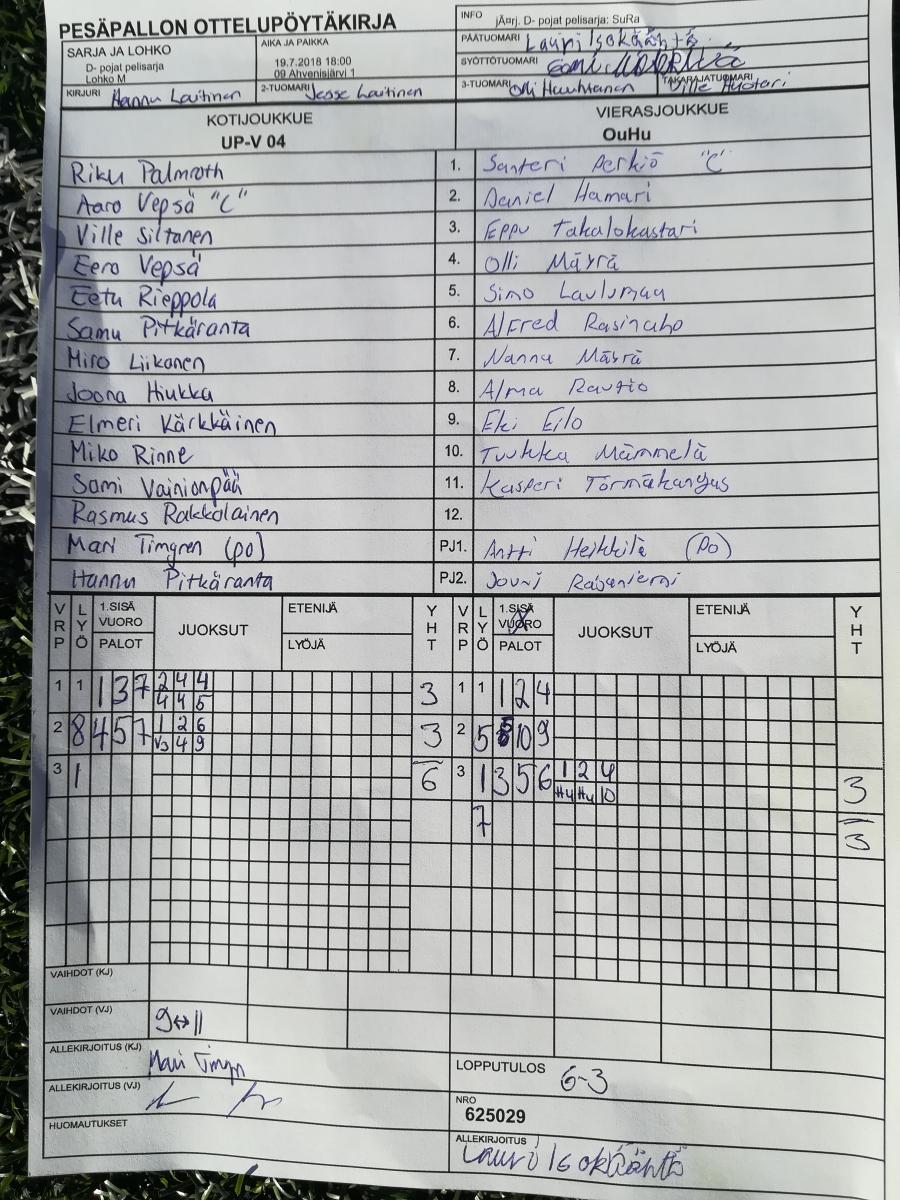 PESÄPALLON OTTELUPÖYTÄKIRJA
INFO jÃ¤rj. D- pojat pelisarja: SuRa
SARJA JA LOHKO
D- pojat pelisarja
Lohko M
AIKA JA PAIKKA
19.7.2018 18:00
09 Ahvenisjärvi 1
PÄÄTUOMARI Lauri Isokääntä
SYÖTTÖTUOMARI
KIRJURI Hannu Laitinen
2-TUOMARI Jesse Laitinen
3-TUOMARI Olli Hauhtanen
TAKARAJATUOMARI Ville Huotari
KOTIJOUKKUE
UP-V 04
VIERASJOUKKUE
OuHu
Riku Palmroth 1. Santeri Perkiö "C"
Aaro Vepsä "C" 2. Daniel Hamari
Ville Siltanen 3. Eppu Takalokastari
Eero Vepsä 4. Olli Mäyrä
Eetu Rieppola 5. Simo Laulumaa
Samu Pitkäranta 6. Alfred Rasinaho
Miro Liikanen 7. Nanna Mäyrä
Joona Hiukka 8. Alma Rautio
Elmeri Kärkkäinen 9. Eki Eilo
Miko Rinne 10. Tuukka Mämmelä
Sami Vainionpää 11. Kasperi Törmäkangas
Rasmus Rakkolainen 12.
Mari Timgren (po) PJ1. Antti Heikkilä (po)
Hannu Pitkäranta PJ2. Jouni Rasaniemi
VRP LYÖ 1.SISÄ VUORO PALOT JUOKSUT ETENIJÄ LYÖJÄ YHT VRP LYÖ 1.SISÄ VUORO X PALOT JUOKSUT ETENIJÄ LYÖJÄ YHT
1 1 1 3 7 2 4 4 3 1 1 1 2 4
4 4 5
2 8 4 5 7 1 2 6 3 2 5 5 10 9
V3 4 9
3 1 6 3 1 3 5 6 1 2 4 3
H4 H4 10
7 3
VAIHDOT (KJ)
VAIHDOT (VJ) 9↔11
ALLEKIRJOITUS (KJ) Mari Timgren
LOPPUTULOS 6-3
ALLEKIRJOITUS (VJ)
NRO
625029
HUOMAUTUKSET
ALLEKIRJOITUS Lauri Isokääntä